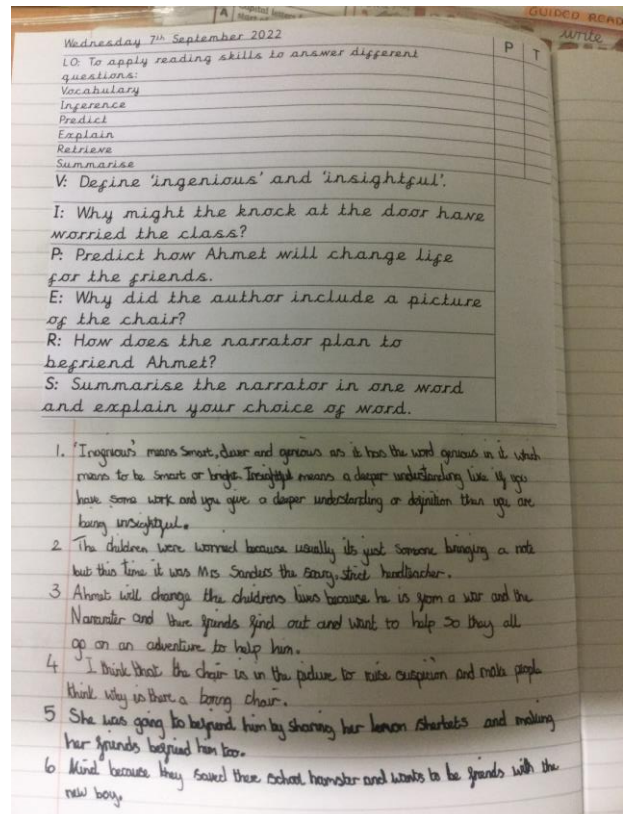 A
GUIDED READ
write
Wednesday 7th September 2022
P T
LO: To apply reading skills to answer different
questions:
Vocabulary
Inference
Predict
Explain
Retrieve
Summarise
V: Define 'ingenious' and 'insightful'.
I: Why might the knock at the door have
worried the class?
P: Predict how Ahmet will change life
for the friends.
E: Why did the author include a picture
of the chair?
R: How does the narrator plan to
befriend Ahmet?
S: Summarise the narrator in one word
and explain your choice of word.
1. means smart, and as it has the word in it which
means to be smart or bright. Insightful means a deeper understanding like if you
have some work and you give a deeper understanding or definition then you are
being insightful.
2 The children were worried because usually its just someone bringing a note
but this time it was Mrs Sanders the scary, strict
3 Ahmet will change the childrens lives because he is from a war and the
and there friends find out and want to help so they all
go on an adventure to help him.
4 I think that the chair is in the picture to and make people
think why is there a boring chair.
5 She was going to befriend him by sharing her lemon sherbets and making
her friends befriend him too.
6 Kind because they saved there school hamster and wants to be friends with the
new boy.